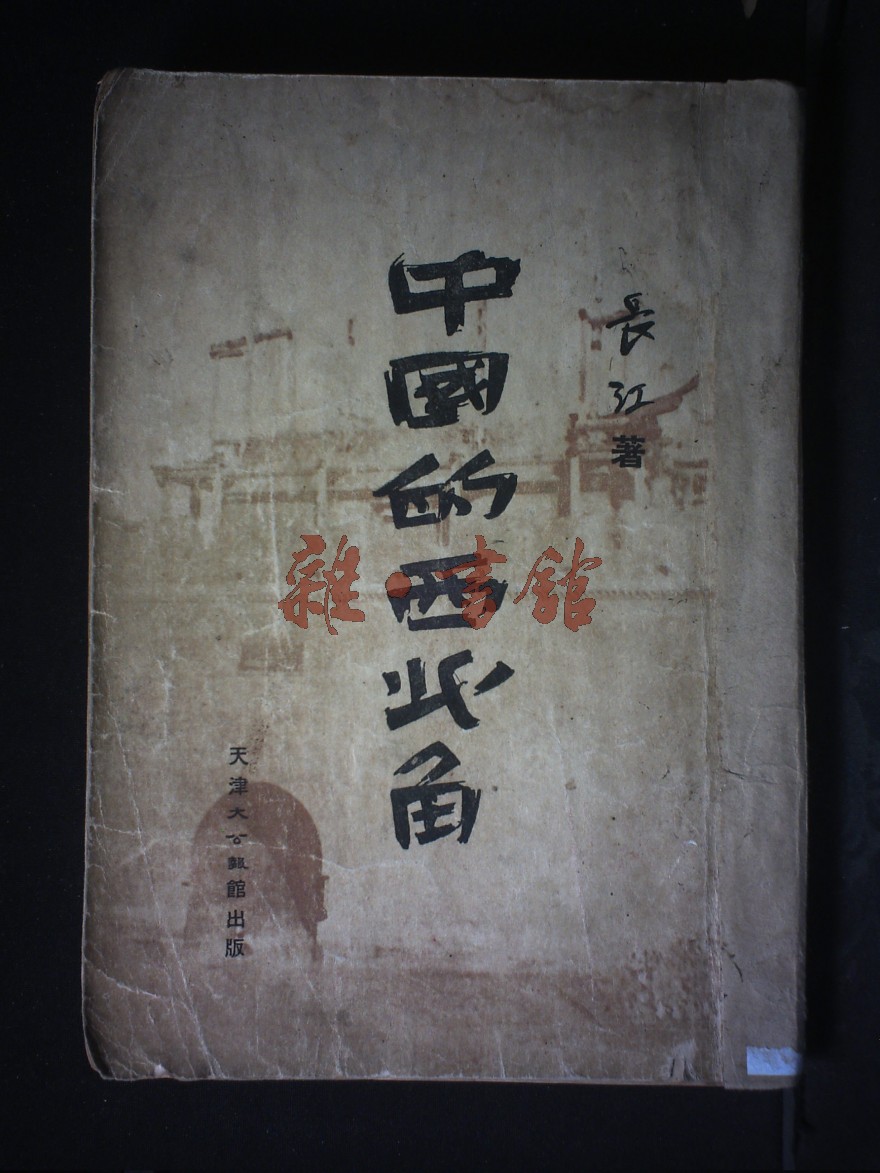 長江著
中國的西北角
天津大公報館出版
雜·書館